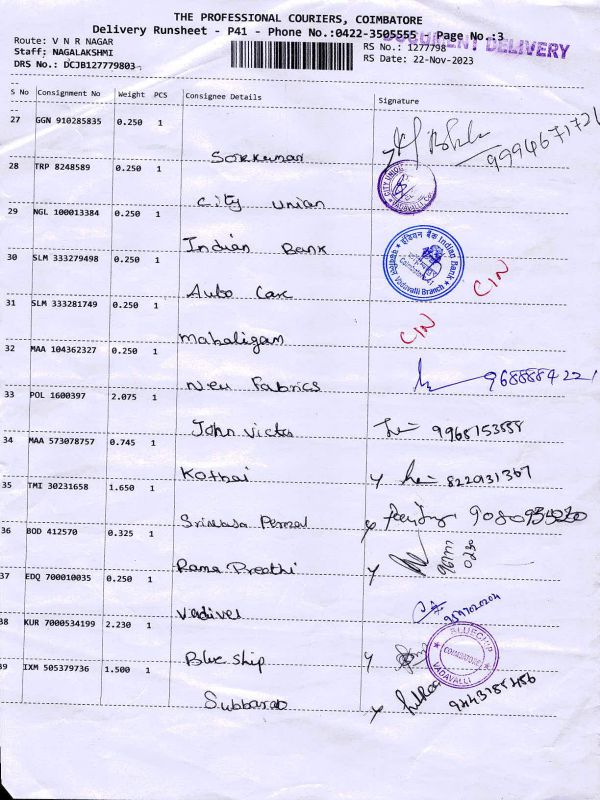 THE PROFESSIONAL COURIERS, COIMBATORE
Delivery Runsheet - P41 - Phone No.:0422-3505555 Page No.:3
DOCUMENT DELIVERY
Route: V N R NAGAR RS No.: 1277798
Staff: NAGALAKSHMI RS Date: 22-Nov-2023
DRS No.: DCJB127779803
S No Consignment No Weight PCS Consignee Details Signature
27 GGN 910285835 0.250 1
9994671721
28 TRP 8248589 0.250 1
CITY UNION
City union
29 NGL 100013384 0.250 1
Indian Bank
इंडियन बैंक Indian Bank
Vadavalli Branch
30 SLM 333279498 0.250 1
CIN
Auto Car
31 SLM 333281749 0.250 1
CIN
Mahaligam
32 MAA 104362327 0.250 1
New Fabrics 9688884221
33 POL 1600397 2.075 1
John victo 9968153888
34 MAA 573078757 0.745 1
Kothai 8220931367
35 TMI 30231658 1.650 1
36 BOD 412570 0.325 1
Rama Preethi
37 EDQ 700010035 0.250 1
vadivel
38 KUR 7000534199 2.230 1
BLUECHIP
COIMBATORE
VADAVALLI
Blue ship
39 IXM 505379736 1.500 1
Subbarao